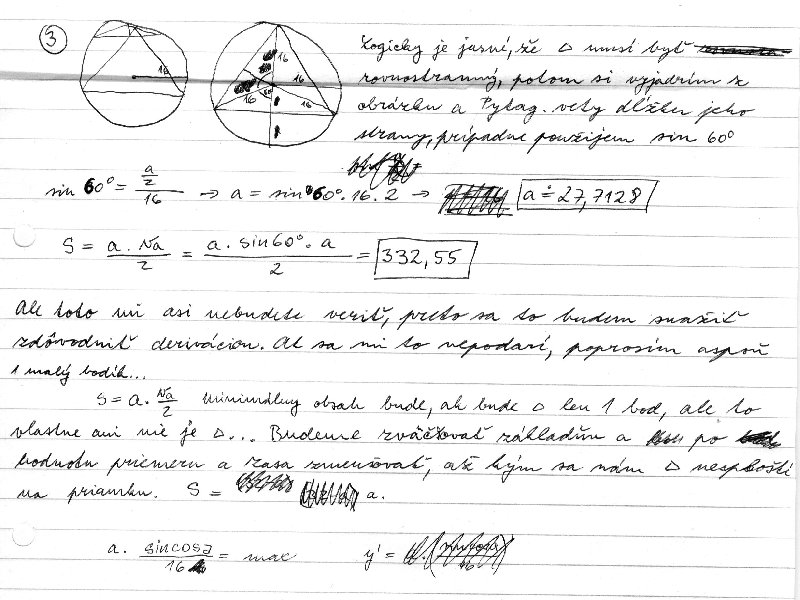 3
16
16
16
16
16
Logicky je jasné, že △ musí byť
rovnostranný, potom si vyjadrím z
obrázku a Pytag. vety dĺžku jeho
strany, prípadne použijem sin 60°
sin 60° = a/2 / 16 → a = sin 60° . 16 . 2 → a ≐ 27,7128
S = a . va / 2 = a . sin 60° . a / 2 = 332,55
Ale toto mi asi nebudete veriť, preto sa to budem snažiť
zdôvodniť deriváciou. Ak sa mi to nepodarí, poprosím aspoň
1 malý bodík...
S = a . va / 2 Minimálny obsah bude, ak bude △ len 1 bod, ale to
vlastne ani nie je △... Budeme zväčšovať základňu a po
hodnotu priemeru a zasa zmenšovať, až kým sa nám △ nesploští
na priamku. S = a.
a . sin cos / 16 = max y' =